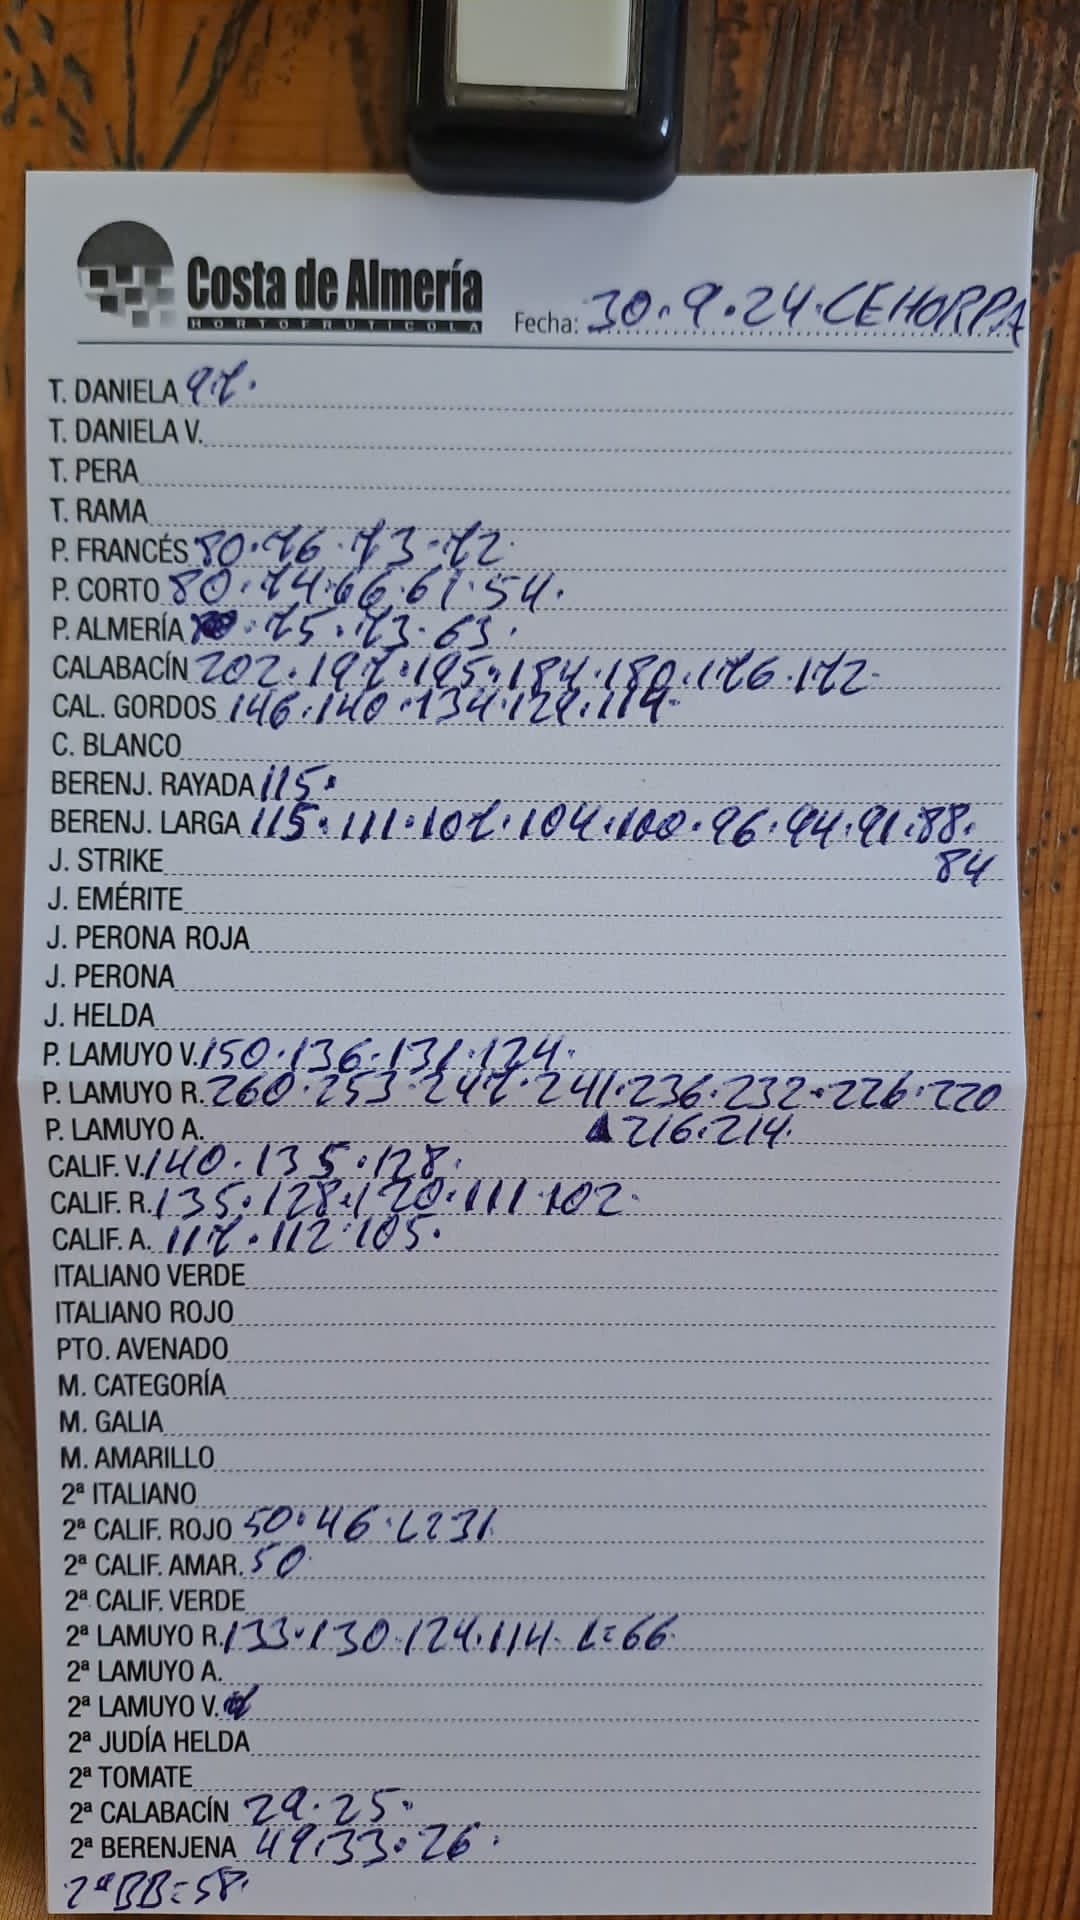 Costa de Almería
HORTOFRUTICOLA
Fecha: 30.9.24.CEHORPA
T. DANIELA 97.
T. DANIELA V.
T. PERA
T. RAMA
P. FRANCÉS 80.76.73.72.
P. CORTO 80.74.66.61.54.
P. ALMERÍA .75.73.63.
CALABACÍN 202.197.195.184.180.176.172.
CAL. GORDOS 146.140.134.129.119.
C. BLANCO
BERENJ. RAYADA 115.
BERENJ. LARGA 115.111.107.104.100.96.94.91.88.
J. STRIKE 84
J. EMÉRITE
J. PERONA ROJA
J. PERONA
J. HELDA
P. LAMUYO V. 150.136.131.124.
P. LAMUYO R. 260.253.247.241.236.232.226.220
P. LAMUYO A. 216.214.
CALIF. V. 140.135.128.
CALIF. R. 135.128.120.111.102.
CALIF. A. 117.112.105.
ITALIANO VERDE
ITALIANO ROJO
PTO. AVENADO
M. CATEGORÍA
M. GALIA
M. AMARILLO
2ª ITALIANO
2ª CALIF. ROJO 50.46.L=31.
2ª CALIF. AMAR. 50.
2ª CALIF. VERDE
2ª LAMUYO R. 133.130.124.114. L=66.
2ª LAMUYO A.
2ª LAMUYO V.
2ª JUDÍA HELDA
2ª TOMATE
2ª CALABACÍN 29.25.
2ª BERENJENA 49.33.26.
2ªBB=58.